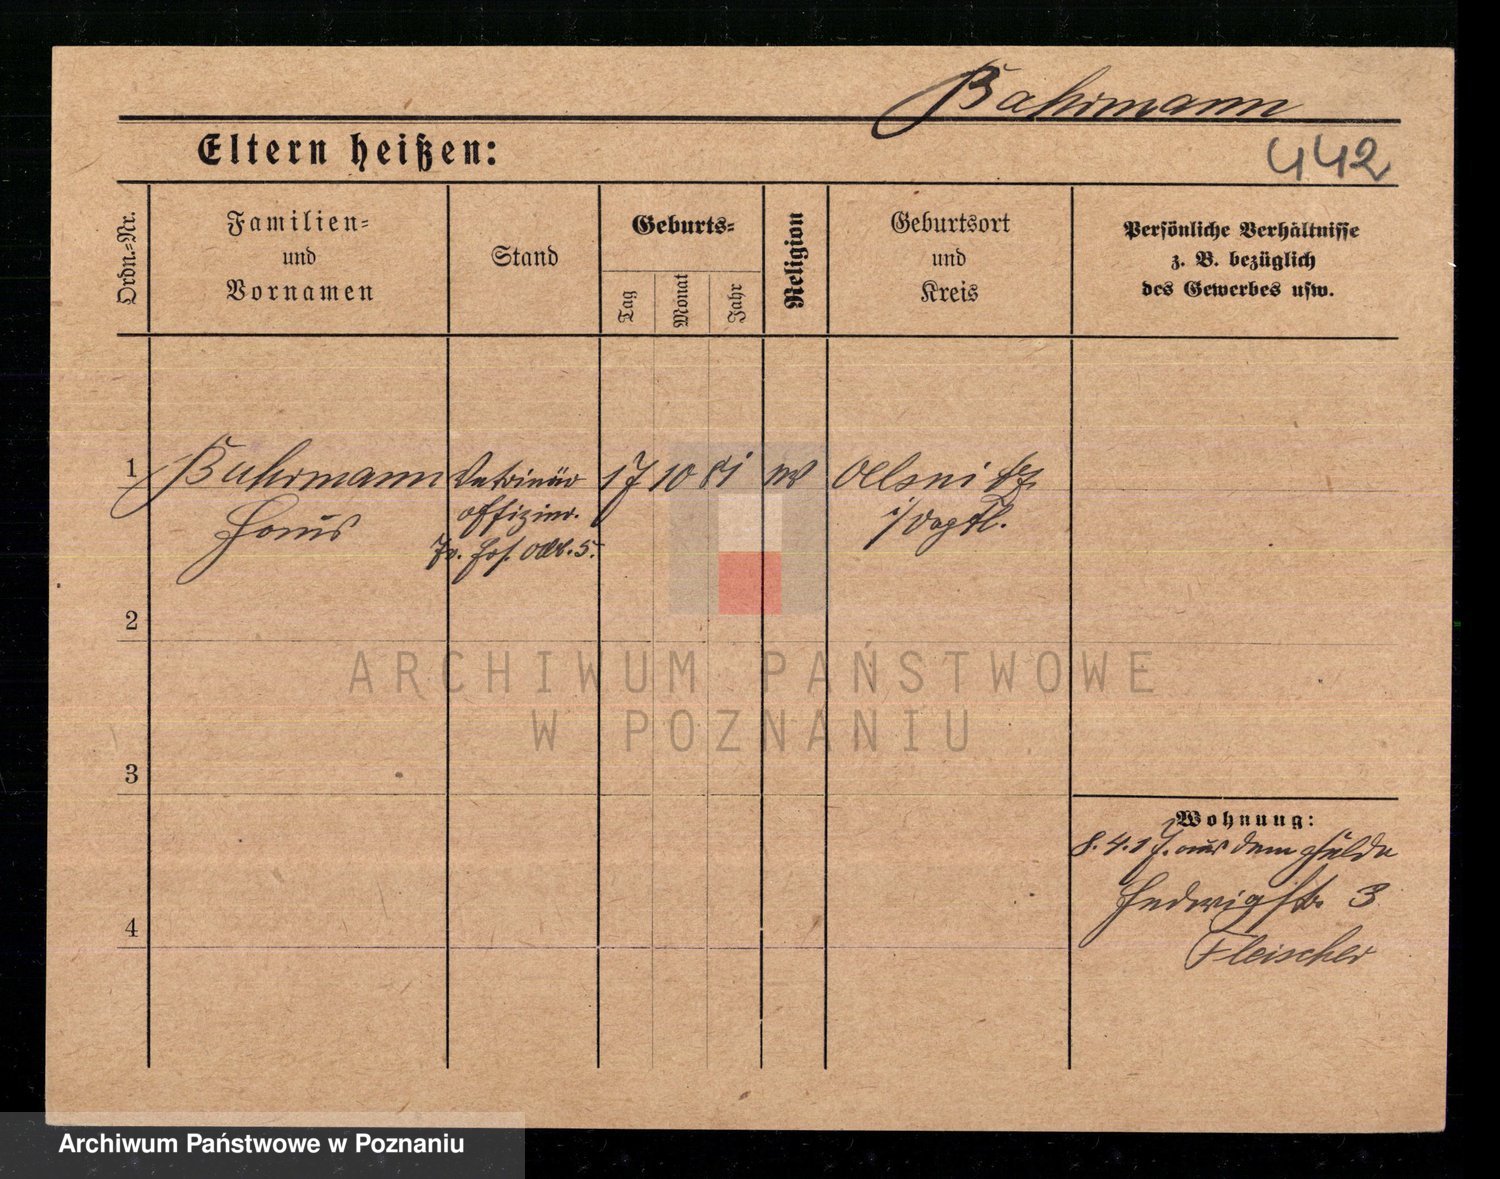 Bahrmann
Eltern heißen:
442
Ordn.-Nr.
Familien-
und
Vornamen
Stand
Geburts-
Tag
Monat
Jahr
Religion
Geburtsort
und
Kreis
Persönliche Verhältnisse
z. B. bezüglich
des Gewerbes usw.
1
Bahrmann
Hans
Veterinär
offizier.
17
10
81
ev
Oelsnitz
i/Vogtl.
2
3
4
Wohnung:
8. 4. 17. aus dem Felde
Hedwigstr. 3
Fleischer
ARCHIWUM PAŃSTWOWE
W POZNANIU
Archiwum Państwowe w Poznaniu